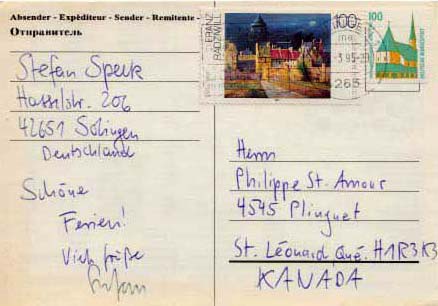 Absender - Expéditeur - Sender - Remitente -
Отправитель
Stefan Speck
Hasselstr. 206
42651 Solingen
Deutschland
Schöne
Ferien!
Viele Grüße
Stefan
FRANZ
RADZIWILL
100
100
265
Herrn
Philippe St. Amour
4545 Plinguet
St. Léonard Qué. H1R3K3
KANADA